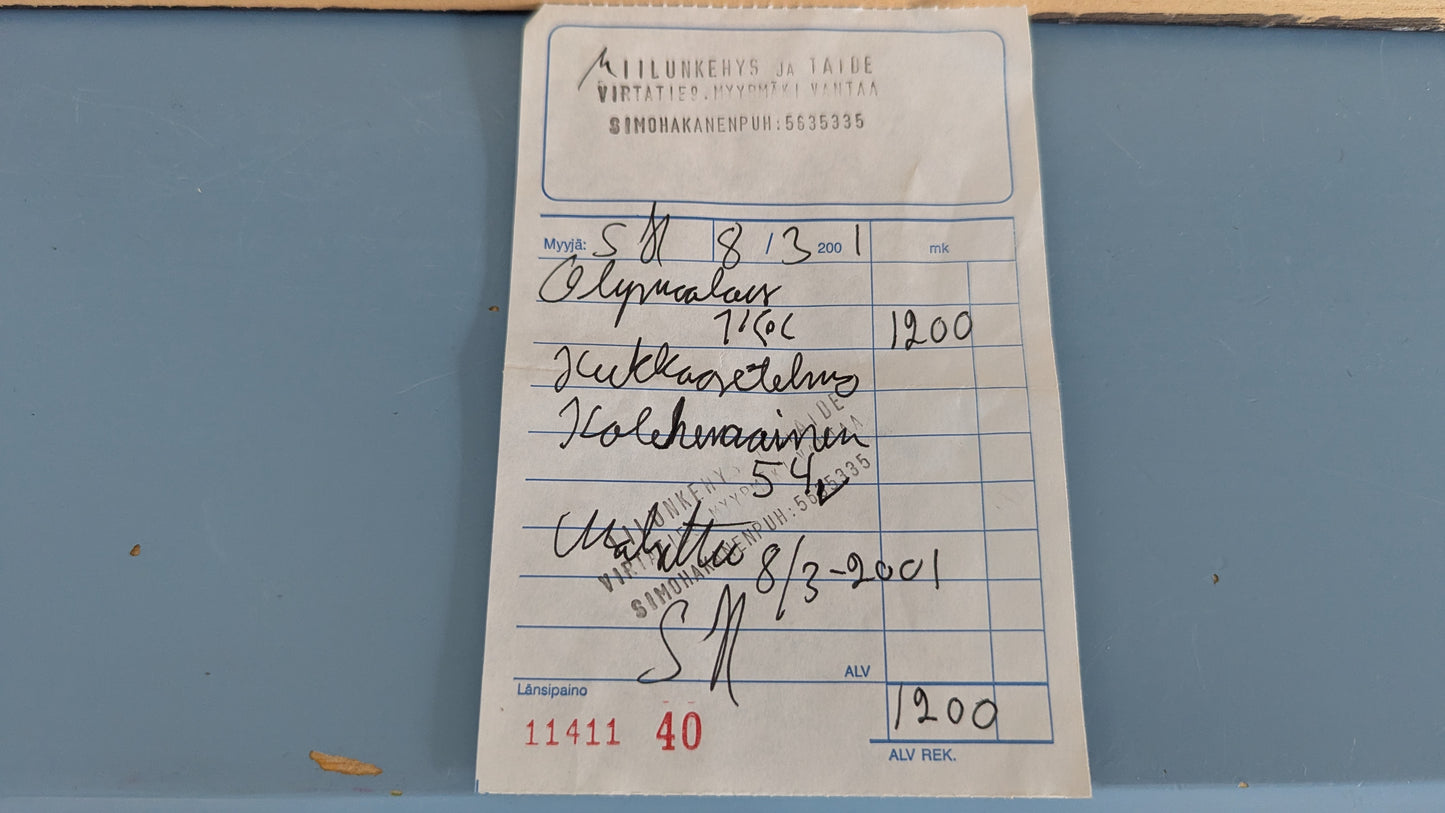 MIILUNKEHYS JA TAIDE
VIRTATIE9.MYYRMÄKI VANTAA
SIMOHAKANENPUH:5635335
Myyjä: SH 8/3 2001 mk
1200
Kukkaasetelma
Kolehmainen
54
MIILUNKEHYS JA TAIDE
VIRTATIE9.MYYRMÄKI VANTAA
SIMOHAKANENPUH:5635335
Maksettu 8/3-2001
SH
ALV
Länsipaino
1200
11411 40
ALV REK.